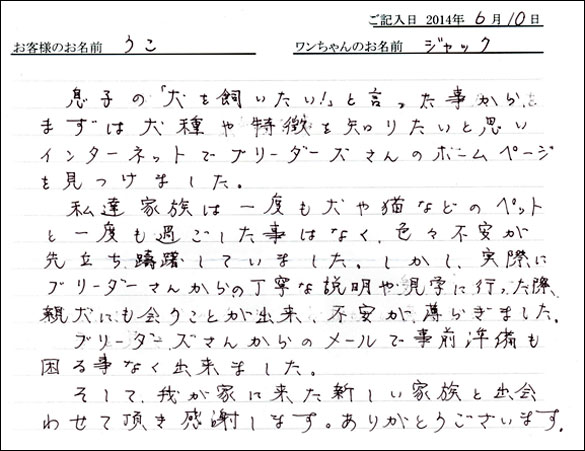 ご記入日 2014年 6月 10日
お客様のお名前 うこ ワンちゃんのお名前 ジャック
息子の「犬を飼いたい!」と言った事から、
まずは犬種や特徴を知りたいと思い
インターネットでブリーダーズさんのホームページ
を見つけました。
私達家族は一度も犬や猫などのペット
と一度も過ごした事はなく、色々不安が
先立ち躊躇していました。しかし、実際に
ブリーダーさんからの丁寧な説明や見学に行った際、
親犬にも会うことが出来、不安が薄らぎました。
ブリーダーズさんからのメールで事前準備も
困る事なく出来ました。
そして、我が家に来た新しい家族と出会
わせて頂き感謝します。ありがとうございます。